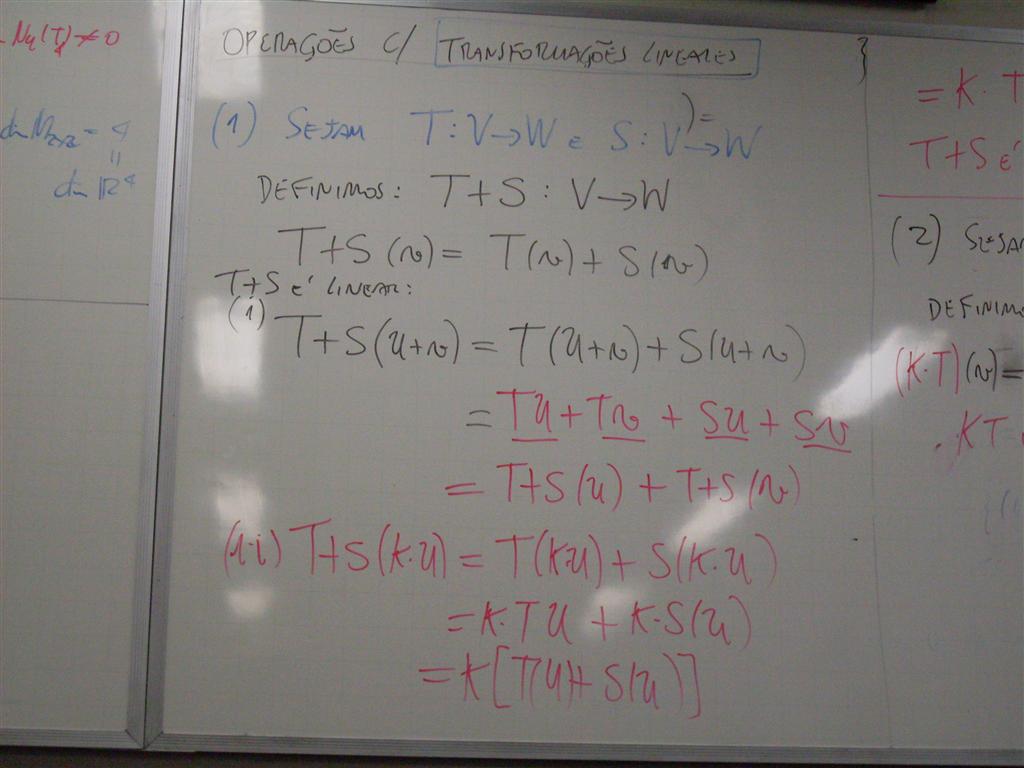 Nu(T) ≠ 0
dim M2x2 = 4
=
dim ℝ⁴
OPERAÇÕES C/ TRANSFORMAÇÕES LINEARES
(1) SEJAM T : V → W E S : V → W
DEFINIMOS: T+S : V → W
T+S (v) = T(v) + S(v)
T+S É LINEAR:
(i) T+S(u+v) = T(u+v) + S(u+v)
= Tu + Tv + Su + Sv
= T+S(u) + T+S(v)
(ii) T+S(k·u) = T(k·u) + S(k·u)
= k·Tu + k·S(u)
= k[T(u)+ S(u)]
= K · T
T+S É
(2) SEJAM
DEFINIMOS
(K·T)(v) =
. KT =